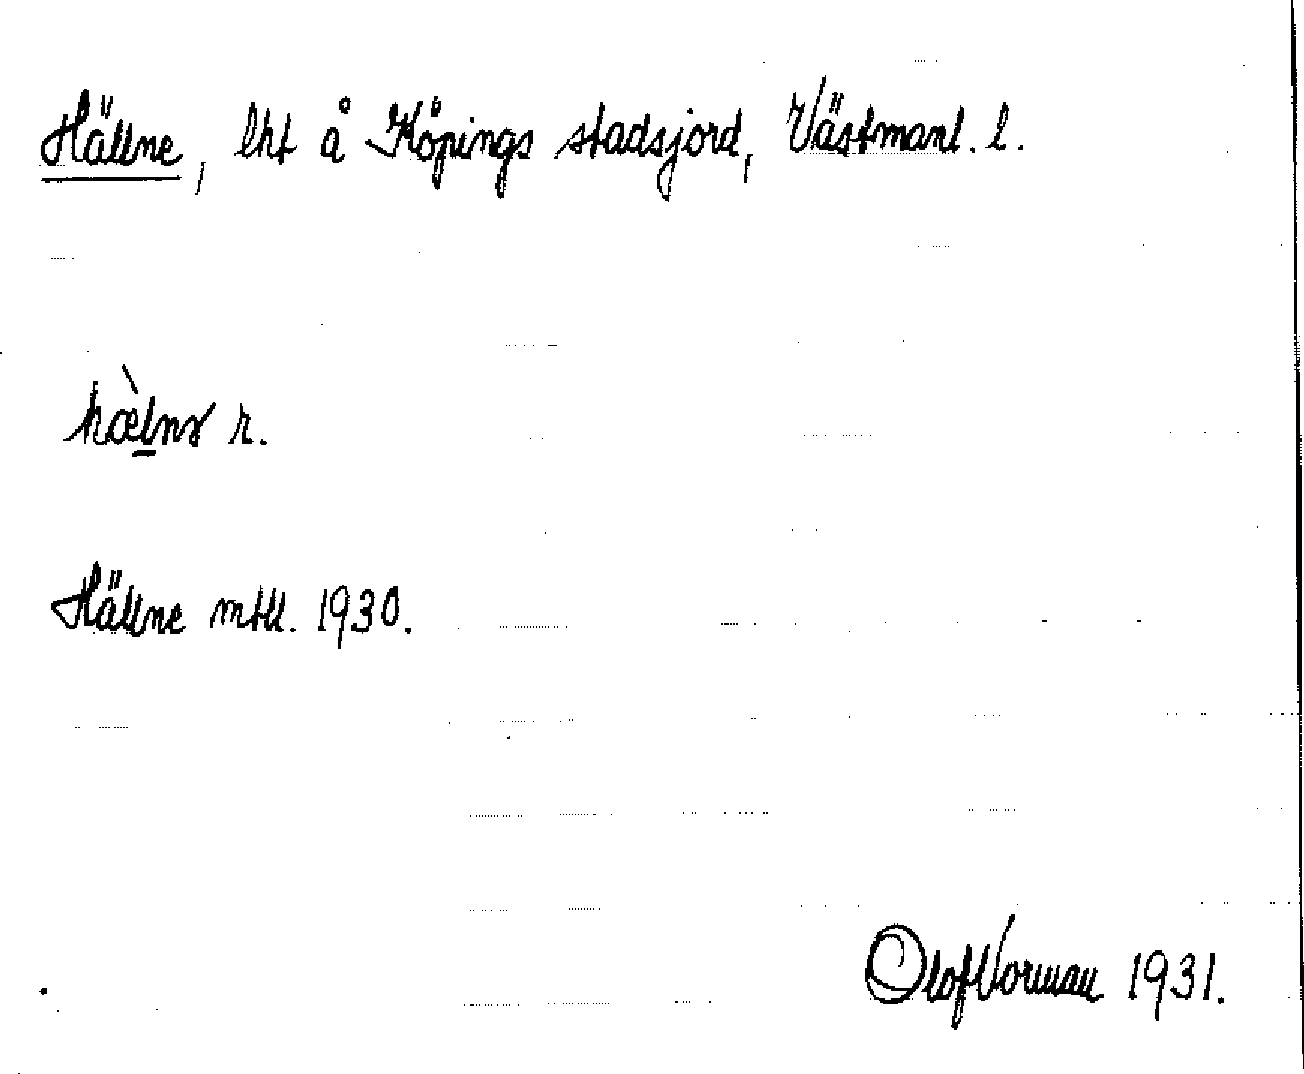 Hällne, lht å Köpings stadsjord, Västmanl. l.
hæ̀lnə r.
Hällne mtll. 1930.
Olof Vorman 1931.